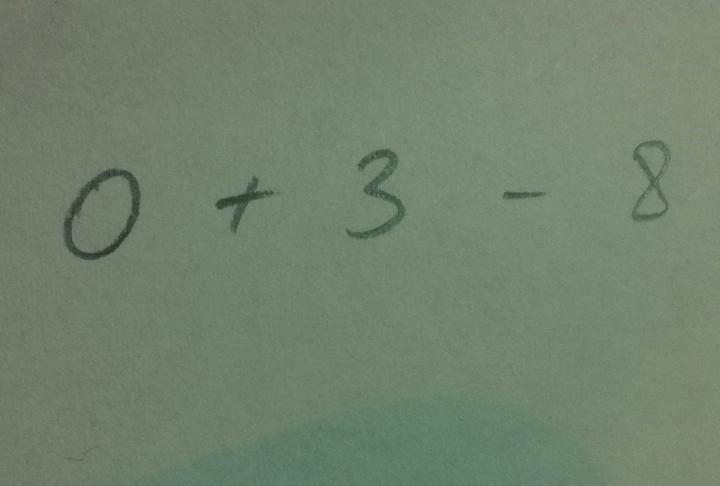 0 + 3 - 8